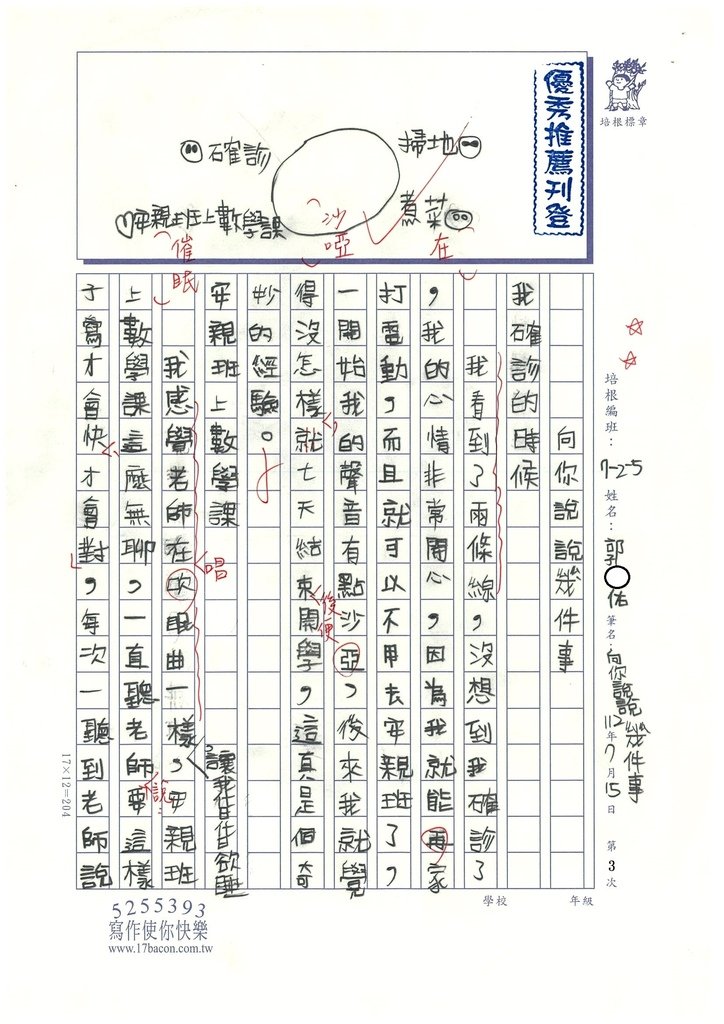 優秀推薦刊登
培根標章
確診
掃地
煮菜
安親班上數學課
沙啞
在
催眠
培根編班：7-2-5
姓名：郭○佑
筆名：向你說說幾件事
112年7月15日
第3次
向你說說幾件事
我確診的時候
我看到了兩條線，沒想到我確診了
，我的心情非常開心，因為我就能再家
打電動，而且就可以不用去安親班了，
一開始我的聲音有點沙亞，後來我就覺
得沒怎樣就七天結束開學，這真是個奇
，
後便
妙的經驗。
安親班上數學課
讓我昏昏欲睡
我感覺老師在吹眠曲一樣，安親班
唱
上數學課這麼無聊，一直聽老師要這樣
說：
子寫才會快才會對，每次一聽到老師說
17×12=204
學校
年級
5255393
寫作使你快樂
www.17bacon.com.tw